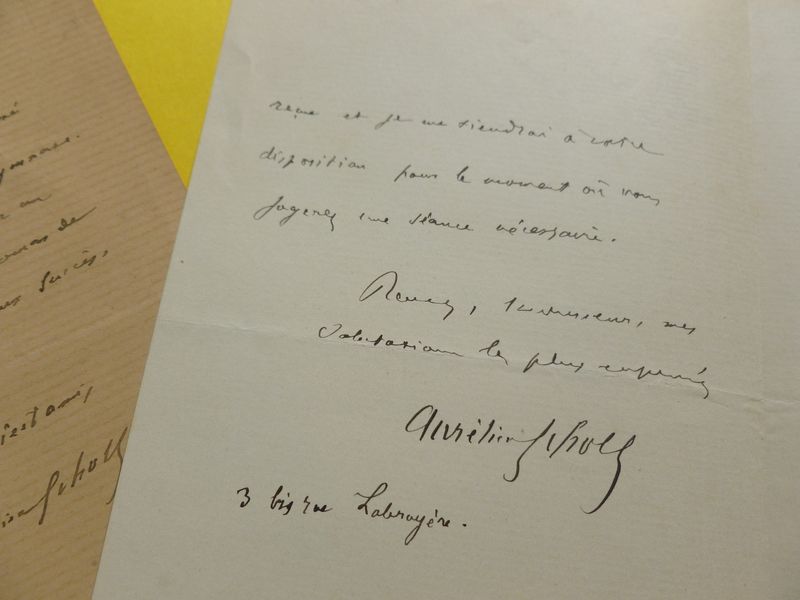 et je me tiendrai à votre
disposition pour le moment où vous
jugerez une séance nécessaire.
Recevez, Monsieur, mes
Salutations les plus empressées
Aurélien Scholl
3 bis rue Labruyère.
de
Succès,
Scholl